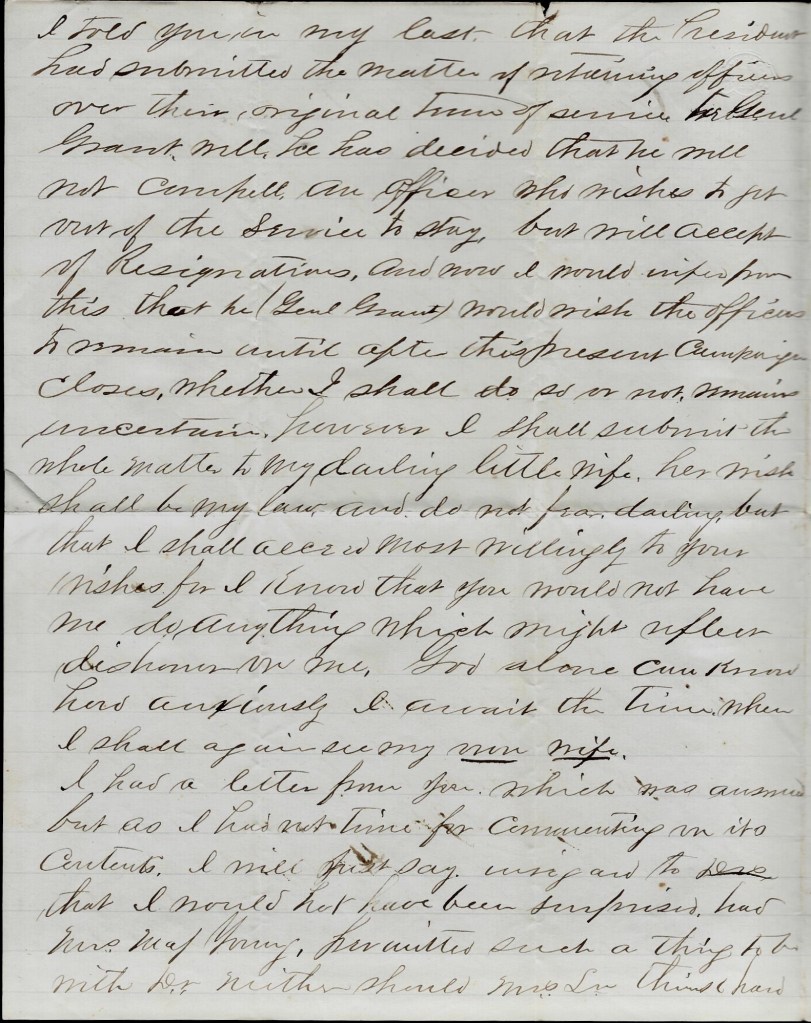 I told you in my last that the President
had submitted the matter of retaining officers
over their original term of service to Genl
Grant. Well, he has decided that he will
not compell, an officer who wishes to get
out of the Service to stay, but will accept
of Resignations, and now I would infer from
this that he (Genl Grant) would wish the officers
to remain until after this present Campaign
closes, whether I shall do so or not, remains
uncertain, however I shall submit the
whole matter to my darling little wife, her wish
shall be my law, and do not fear darling, but
that I shall acceed most willingly to your
wishes for I know that you would not have
me do, anything which might reflect
dishonor on me. God alone can know
how anxiously I await the time when
I shall again see my own wife.
I had a letter from you which was answered
but as I had not time for commenting on its
contents. I will just say in regard to
that I would not have been surprised, had
Mrs. Maj Young, permitted such a thing to be
with Dr neither should Mrs think hard